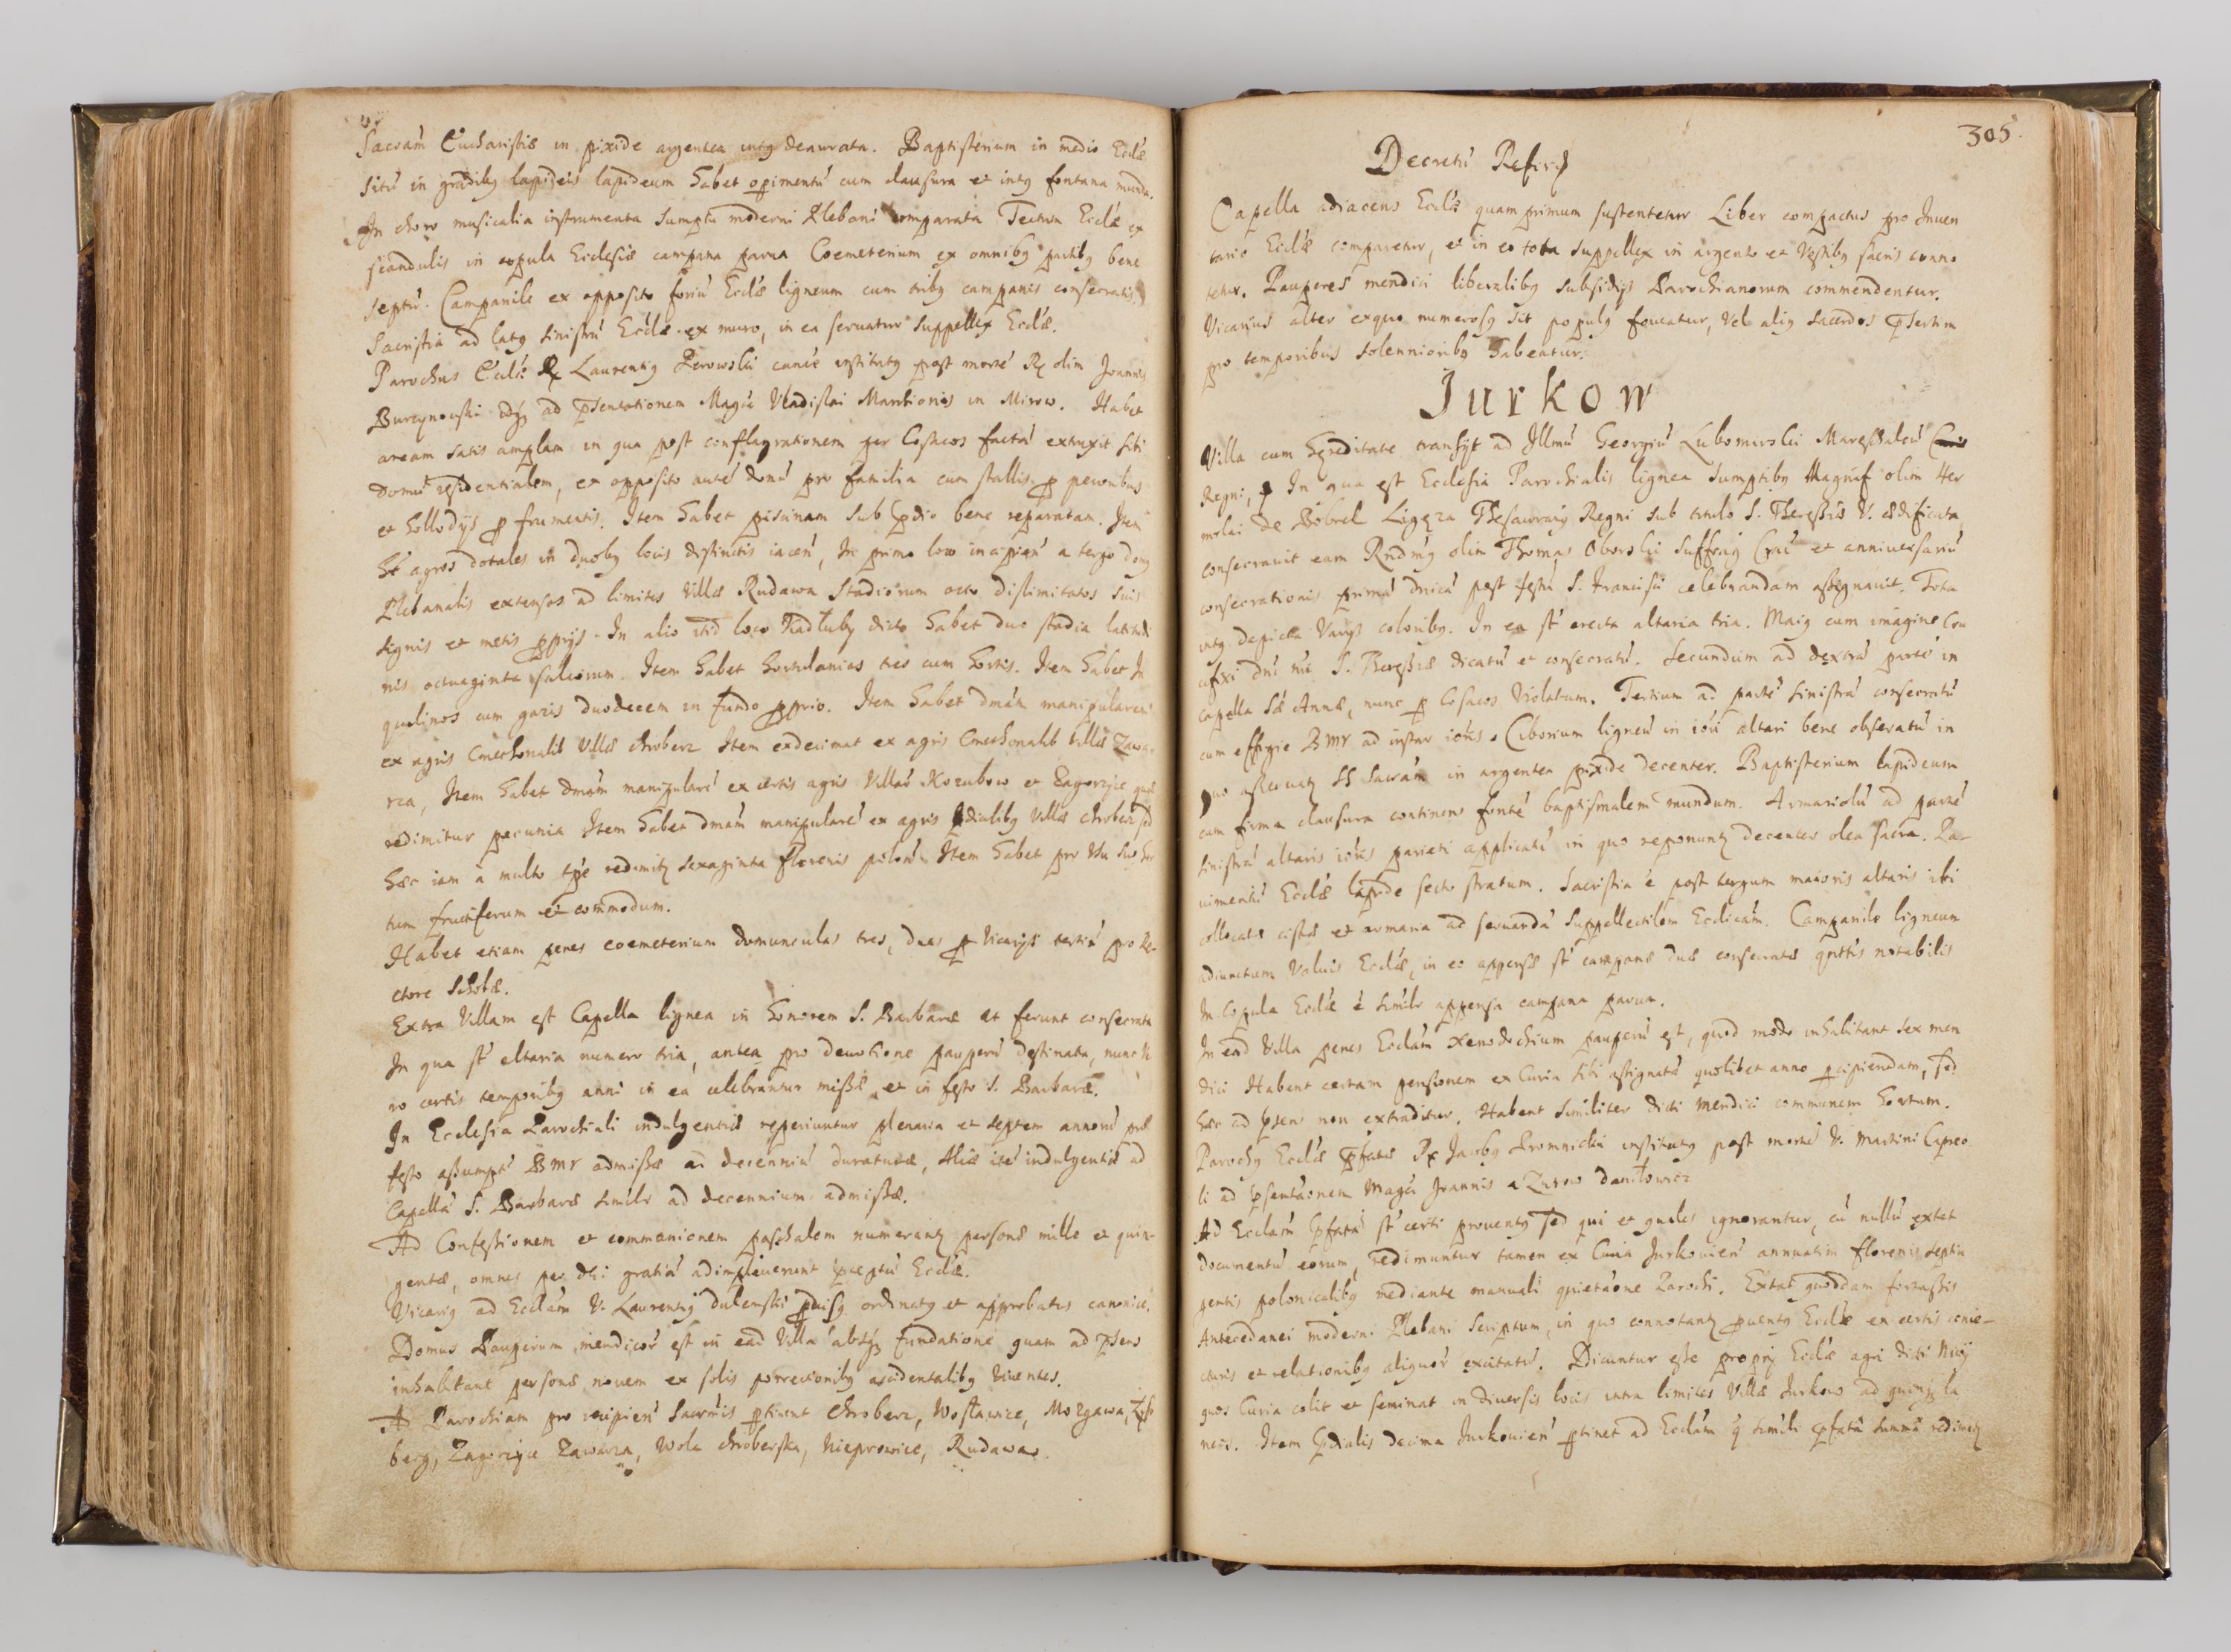 Sacram̃ Eucharistiæ in pixide argentea intꝫ deaurata. Baptisterium in medio Eccł̃æ
situ in gradibꝫ lapideis lapideum habet opimentũ cum clausura et intꝫ fontana munda.
In choro musicalia instrumenta sumptu moderni Plebani comparata Tectum Eccł̃æ ex
scandulis in copula Ecclesiæ campana parua Coemeterium ex omnibꝫ partibꝫ bene
septũ. Campanile ex opposito foriũ Eccł̃æ ligneum cum tribꝫ campanis consecratis
Sacristia ad latꝫ sinistrũ Eccł̃æ ex muro, in ea seruatur suppellex Eccł̃æ.
Parochus Eccł̃æ R Laurentiꝫ Perowski canicè institutꝫ post mortẽ R olim Joannis
ad p̃sentationem Magci Vladislai Marchionis in Mirow. Habet
aream satis amplam in qua post conflagrationem per Cosacos factã extruxit sibi
domũ residentialem, ex opposito autẽ domũ pro familia cum stallis p pecoribus
et hollodijs p frumentis. Item habet piscinam sub p̃dio bene reparatam. Item
ht̃ agros dotales in duobꝫ locis distinctis iaceñ, In primo loco incipieñ a tergo domꝫ
Plebanalis extensos ad limites Villæ Rudawa stadiorum octo dislimitatos suis
signis et metis pprijs. In alio itid loco Nadłuby dicto habet duo stadia latitudi
nis octuaginta sulcorum. Item habet hortulanias tres cum hortis. Item habet In
quilinos cum gazis duodecem in fundo pprio. Item habet dmãm manipularem
ex agris Cmethonalib Villæ chroberz Item exdecimat ex agris Cmethonalib Villæ Zawa
rza, Item habet dmãm manipularẽ ex certis agris Villarũ Kozubow et Zagorzyce quæ
redimitur pecunia Item habet dmãm manipularẽ ex agris p̃dialibꝫ Villæ chroberz sed
hæc iam à multo tp̃e redimitꝫ sexaginta florenis polon. Item habet pro Vsu suo hor
tum fructiferum et commodum.
Habet etiam penes coemeterium domunculas tres, duas p Vicarijs tertiã pro Re-
ctore Scholæ.
Extra Villam est Capella lignea in honorem S. Barbaræ at ferunt consecrata
In qua st̃ altaria numero tria, antea pro deuotione pauperũ destinata, nunc V
ro certis temporibꝫ anni in ea celebrantur missæ, et in festo S. Barbaræ.
In Ecclesia Parochiali indulgentiæ reperiuntur plenaria et septem annorũ pro
festo assumptæ BMV admissæ ad decenniũ duraturæ, Aliæ itẽ indulgentiæ ad
Capellã S. Barbaræ similr ad decennium admissæ.
Ad Confessionem et communionem paschalem numerantꝫ personæ mille et quin-
gentæ, omnes per dei gratiã adimpleuerunt p̃ceptũ Eccł̃æ.
Vicariꝫ ad Ecclãm V. Laurentiꝫ dulenski ordinatꝫ et approbatus canonicè.
Domus Pauperum mendicorũ est in ead Villa absqꝫ fundatione quam ad p̃sens
inhabitant personæ nouem ex solis porrectionibꝫ accidentalibꝫ viuentes.
Ad Parochiam pro recipieñ Sacrm̃tis ptinent Chroberz, Wosławice, Mozgawa,
berg, Zagorzyce Zawarza, Wola chroberska, Nieprowice, Rudawa.
305.
Decretũ Refor
Capella adiacens Eccł̃æ quam primum sustentetur Liber compactus pro Inuen
tario Eccł̃æ comparetur, et in eo tota suppellex in argento et Vestibꝫ sacris conno
tetur. Pauperes mendici liberalibꝫ subsidijs Parochianorum commendentur.
Vicarius alter exquo numerosꝫ sit populꝫ foueatur, Vel aliꝫ sacerdos p̃sertim
pro temporibus solennioribꝫ habeatur.
Jurkow
Villa cum hæreditate transijt ad Illmũ Georgiũ Lubomirski Mareschalcũ
Regni, In qua est Ecclesia Parochialis lignea sumptibꝫ Magnif olim Her
molai de Bobrek Ligęza Thesaurarij Regni sub titulo S. Theressiæ V. ædificata
consecrauit eam Rndmꝫ olim Thomas Oborski suffrag Crac et anniuersariũ
consecrationis primã dnicã post festũ S. Francisci celebrandam assignauit. Tota
intꝫ depicta Varijs coloribꝫ. In ea st̃ erecta altaria tria. Maiꝫ cum imagine Cru
cifixi dni S. Theressiæ dicatũ et consecratũ. Secundum ad dextrã partẽ in
capella S Annæ, nunc p Cosacos Violatum. Tertium ad partẽ sinistrã consecratũ
cum effigie BMV ad instar. Ciborium ligneũ in altari bene obseratũ in
quo asseruatꝫ SS Sacram̃ in argentea pixide decenter. Baptisterium lapideum
cum firma clausura continens fontẽ baptismalem mundum. Armariolũ ad partẽ
sinistrã altaris parieti applicatũ in quo reponuntꝫ decenter olea sacra. Pa-
uimentũ Eccł̃æ lapide secto stratum. Sacristia ẽ post tergum maioris altaris ibi
collocatæ cistæ et armaria ad seruandã suppellectilem Ecclicãm. Campanile ligneum
adiunctum Valuis Eccł̃æ, in eo appensæ st̃ campanæ duæ consecratæ notabilis
In copula Eccł̃æ ẽ similr appensa campana parua.
In ead Villa penes Ecclãm Xenodochium pauperũ est, quod modo inhabitant sex men
dici Habent certam pensionem ex Curia sibi assignatã quolibet anno pcipiendam, sed
hæc ad p̃sens non extraditur. Habent similiter dicti mendici communem hortum.
Parochꝫ Eccł̃æ p̃fatæ R Jacobꝫ Promnicki institutꝫ post mortẽ V. Martini Capreo
li ad p̃sentãonem Magci Joannis a Zurow Daniłowicz
Ad Ecclãm p̃fatã st̃ certi prouentꝫ sed qui et quales ignorantur, cũ nullũ extet
documentũ eorum, redimuntur tamen ex Curia Jurkouieñ annuatim florenis septin
gentis polonicalibꝫ mediante manuali quietãone Parochi. Extat quoddam forassis
Antecedanei moderni Plebani scriptum, in quo connotantꝫ puentꝫ Eccł̃æ ex certis conie-
cturis et relationibꝫ aliquorũ excitatũ. Dicuntur esse proprij Eccł̃æ agri dicti Niwy
quos Curia colit et seminat in diuersis locis intra limites Villæ Jurkow ad quinqꝫ la
neos. Item p̃dialis decima Jurkouieñ ptinet ad Ecclãm q̃ simili p̃fatã summã redimitꝫ